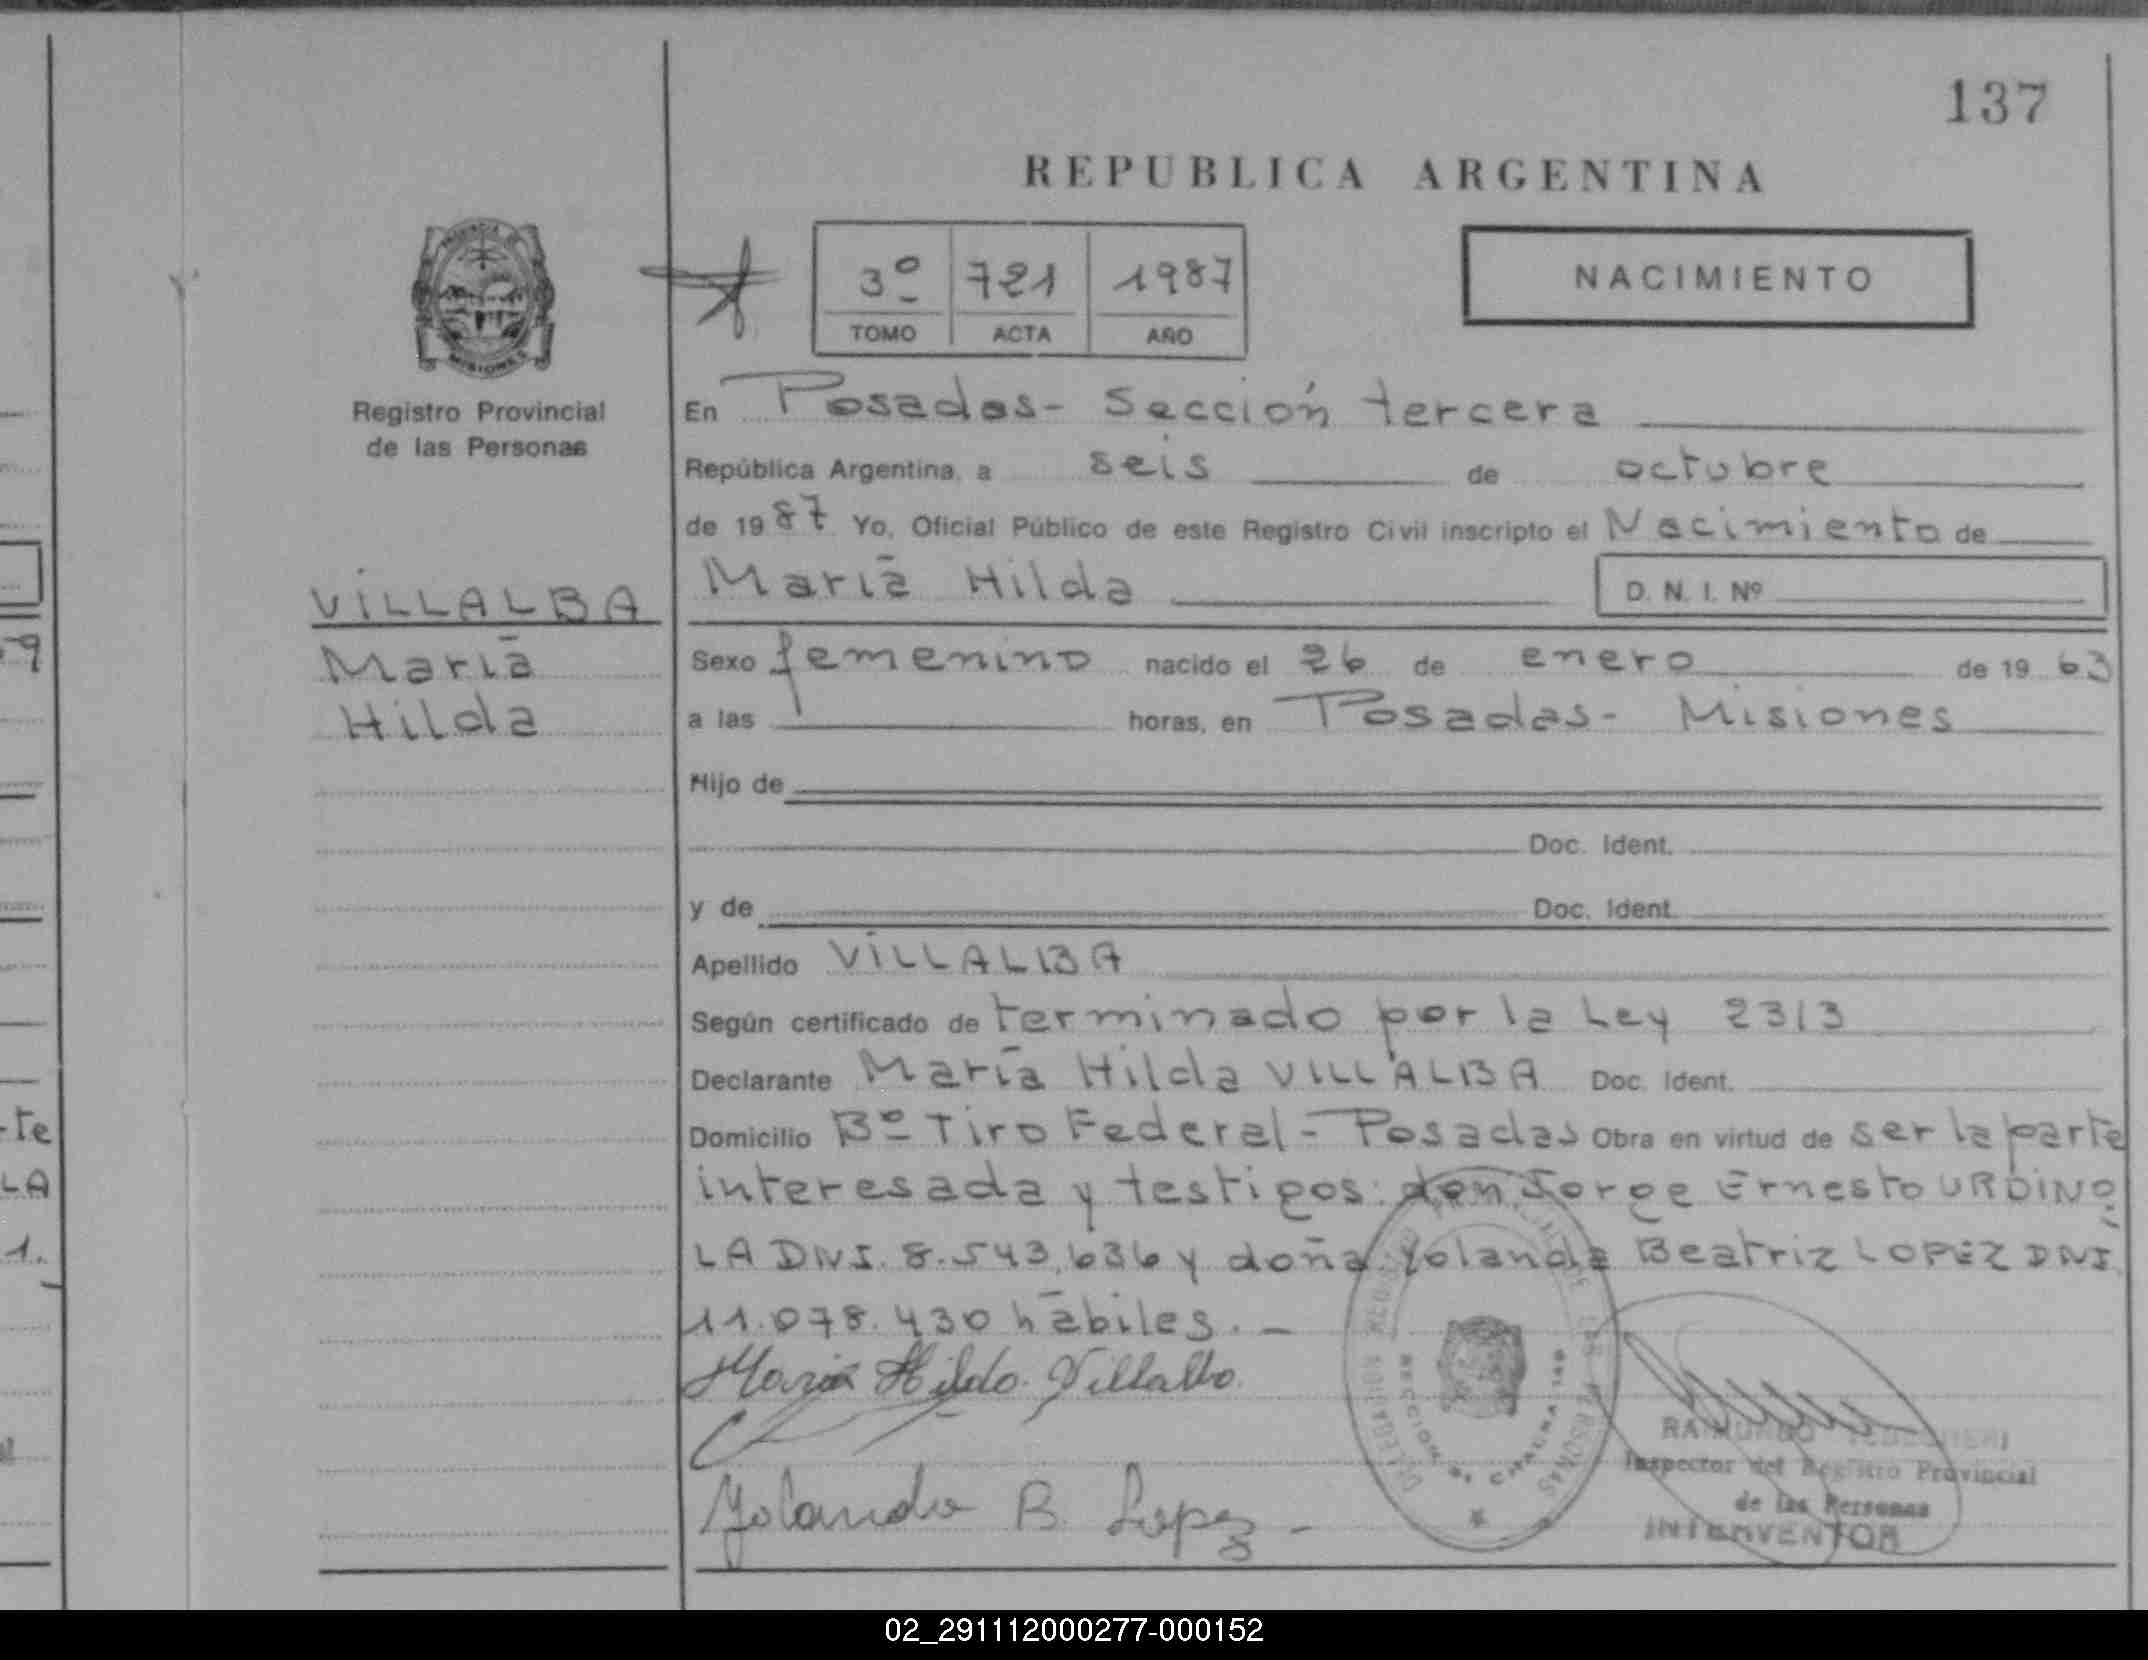 137
REPUBLICA ARGENTINA
3º 721 1987
TOMO ACTA AÑO
NACIMIENTO
PROVINCIA DE
MISIONES
Registro Provincial
de las Personas
VILLALBA
Maria
Hilda
En Posadas- Sección tercera
República Argentina, a seis de octubre
de 1987 Yo, Oficial Público de este Registro Civil inscripto el Nacimiento de
Maria Hilda D. N. I. Nº
Sexo femenino nacido el 26 de enero de 1963
a las horas, en Posadas- Misiones
Hijo de
Doc. Ident.
y de Doc. Ident.
Apellido VILLALBA
Según certificado de terminado por la Ley 2313
Declarante Maria Hilda VILLALBA Doc. Ident.
Domicilio Bº Tiro Federal- Posadas Obra en virtud de ser la parte
interesada y testigos: don Jorge Ernesto URDINO
LA DNI. 8.543.636 y doña Yolanda Beatriz LOPEZ DNI
11.078.430 hábiles.-
Maria Hilda Villalba.
Yolanda B. Lopez-
SECCION CHACRA 149
Inspector del Registro Provincial
de las Personas
INTERVENTOR
te
LA
1.
02_291112000277-000152